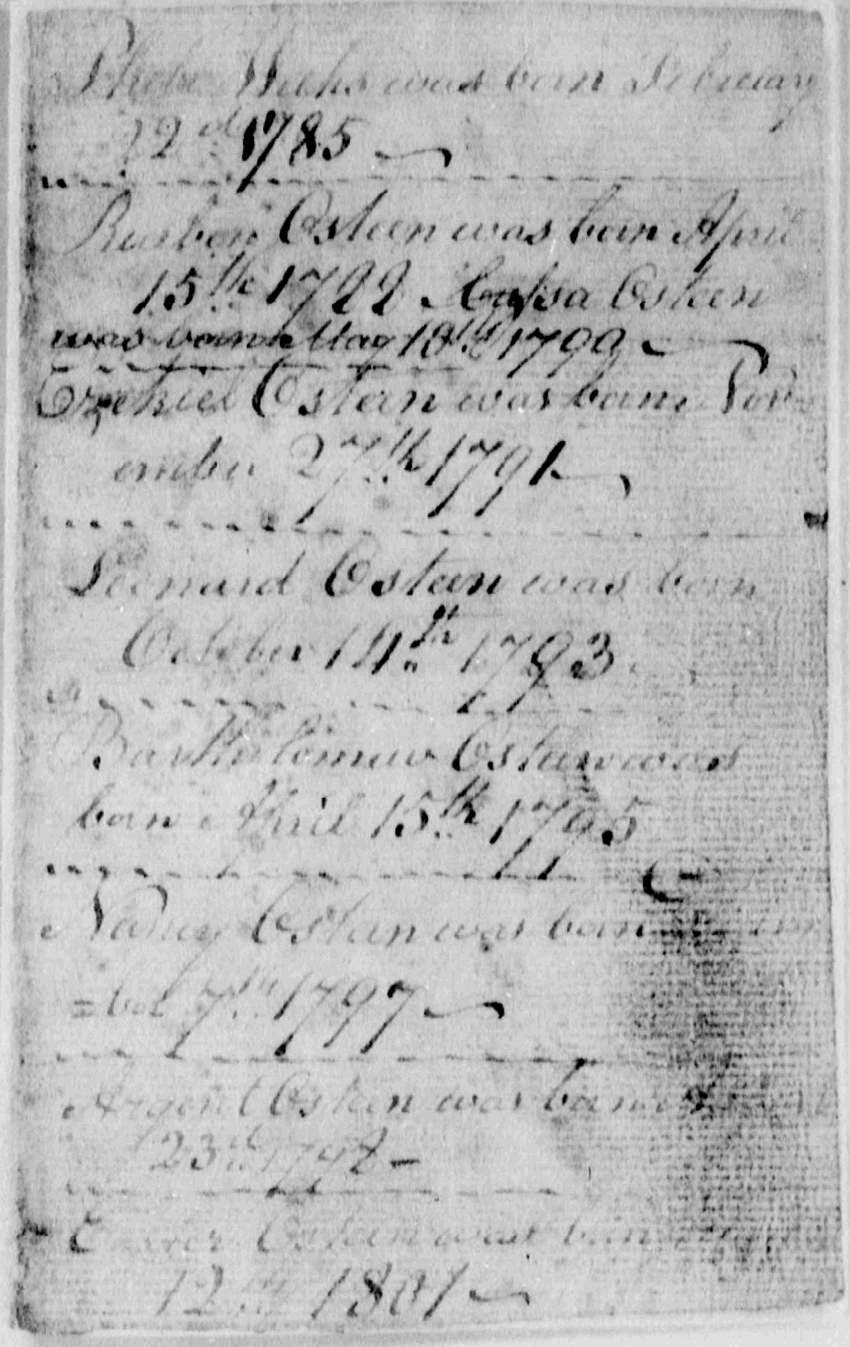 Phebe Weeks was born February
22d 1785
Reuben Osteen was born April
15th 1722 Osteen
was born May 18th 1799
Ezekiel Osteen was born Nov
ember 27th 1791
Leonard Osteen was born
October 14th 1793
Bartholomew Osteen was
born April 15th 1795
Nancy Osteen was born
=ber 7th 1797
Argent Osteen was born
23d 1798
Osteen was born
12th 1801